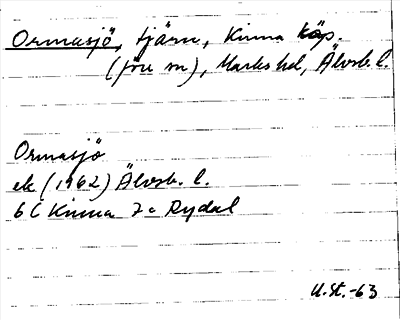 Ormasjö, tjärn, Kinna köp.
(förr sn), Marks hd, Älvsb. l.
Ormasjö
ek (1962) Älvsb. l.
6C Kinna 7c Rydal
U.St.-63